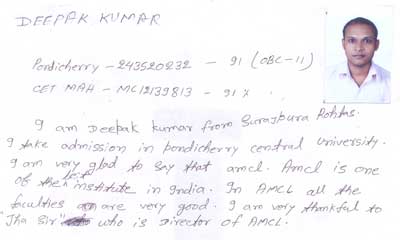 DEEPAK KUMAR
Pondicherry - 243520232 - 91 (OBC-11)
CET MAH - MC12139813 - 91 x
I am Deepak kumar from Surajpura Rohtas.
I take admission in pondicherry central University.
I am very glad to say that amcl. Amcl is one
of the best institute in India. In AMCL all the
faculties are very good. I am very thankful to
"Jha Sir" who is Director of AMCL.